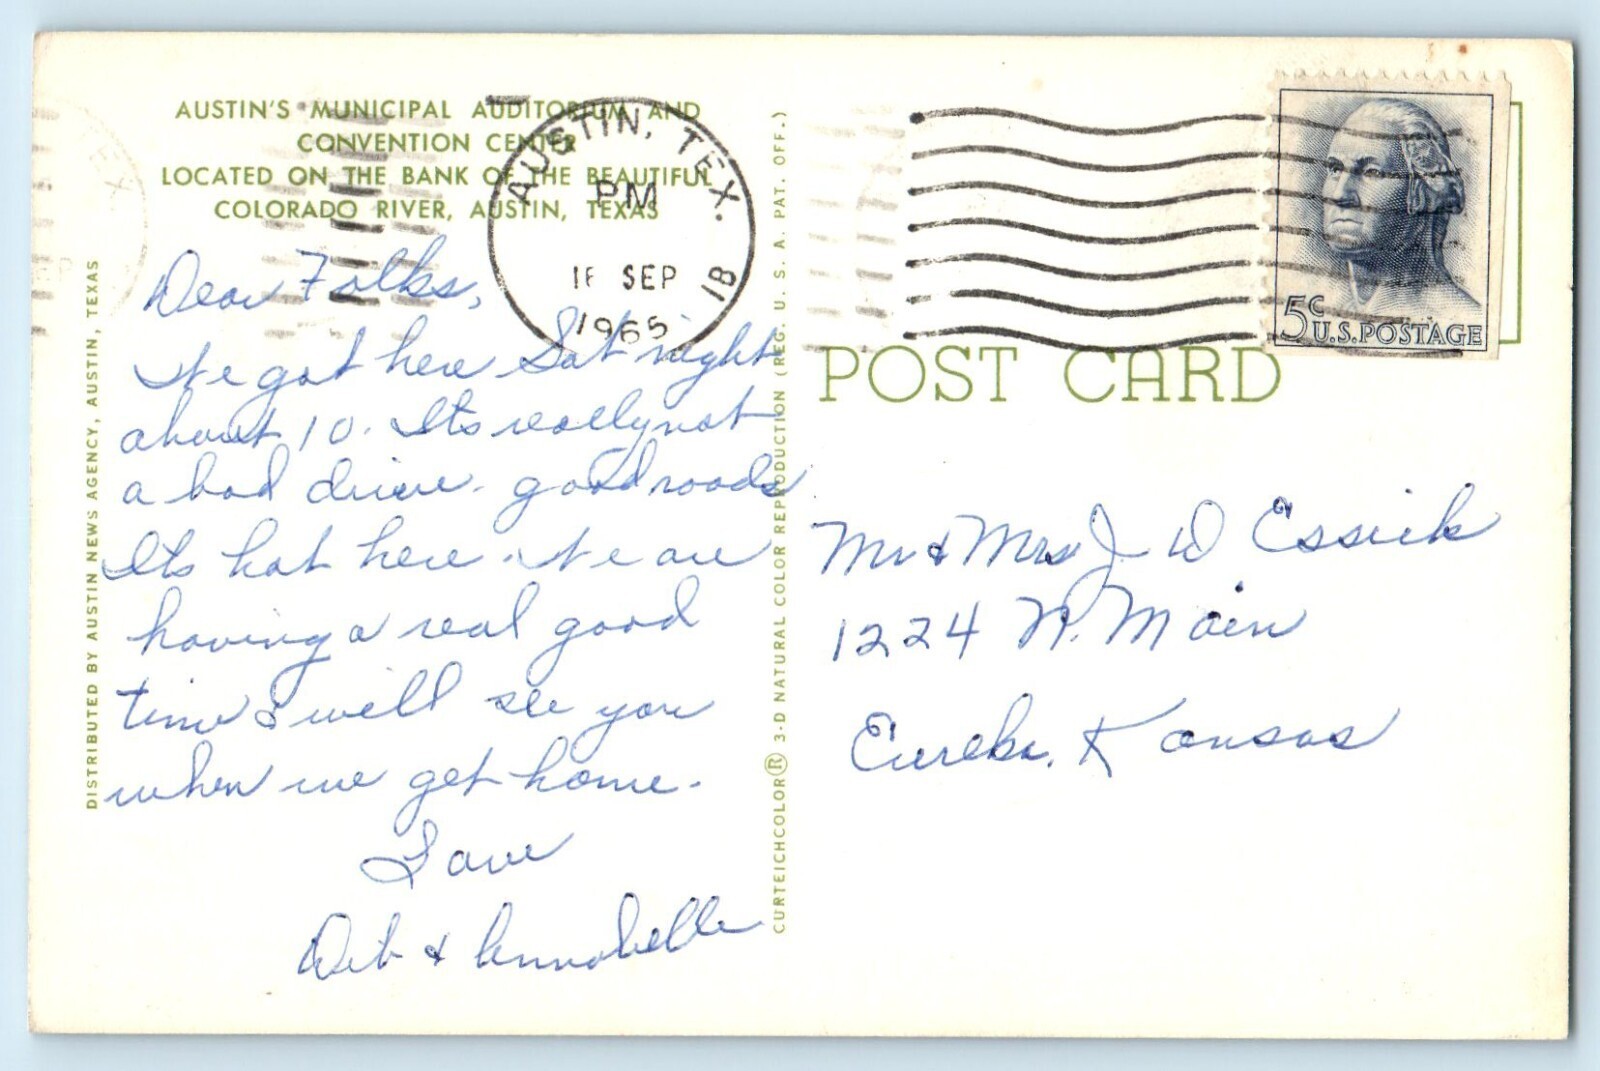 AUSTIN'S MUNICIPAL AUDITORIUM AND
CONVENTION CENTER
LOCATED ON THE BANK OF THE BEAUTIFUL
COLORADO RIVER, AUSTIN, TEXAS
AUSTIN, TEX.
PM
SEP
1965
18
5c
U.S. POSTAGE
POST CARD
Dear Folks,
We got here Sat night
about 10. Its really not
a bad drive. good roads
Its hot here. We are
having a real good
time & will see you
when we get home.
Love
Deb & Annabelle
Mr & Mrs J D Essick
1224 N. Main
Eureka, Kansas
DISTRIBUTED BY AUSTIN NEWS AGENCY, AUSTIN, TEXAS
CURTEICHCOLOR® 3-D NATURAL COLOR REPRODUCTION (REG. U. S. A. PAT. OFF.)